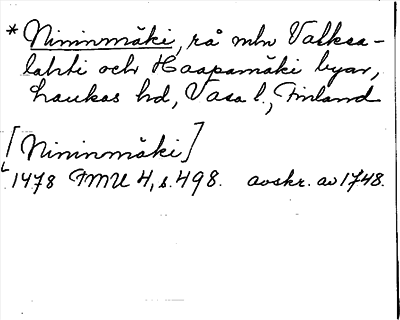 * Nininmäki, rå mln Valkea-
lahti och Haapamäki byar,
Laukas hd, Vasa l., Finland
[Nininmäki]
1478 FMU 4, s. 498. avskr. av 1748.